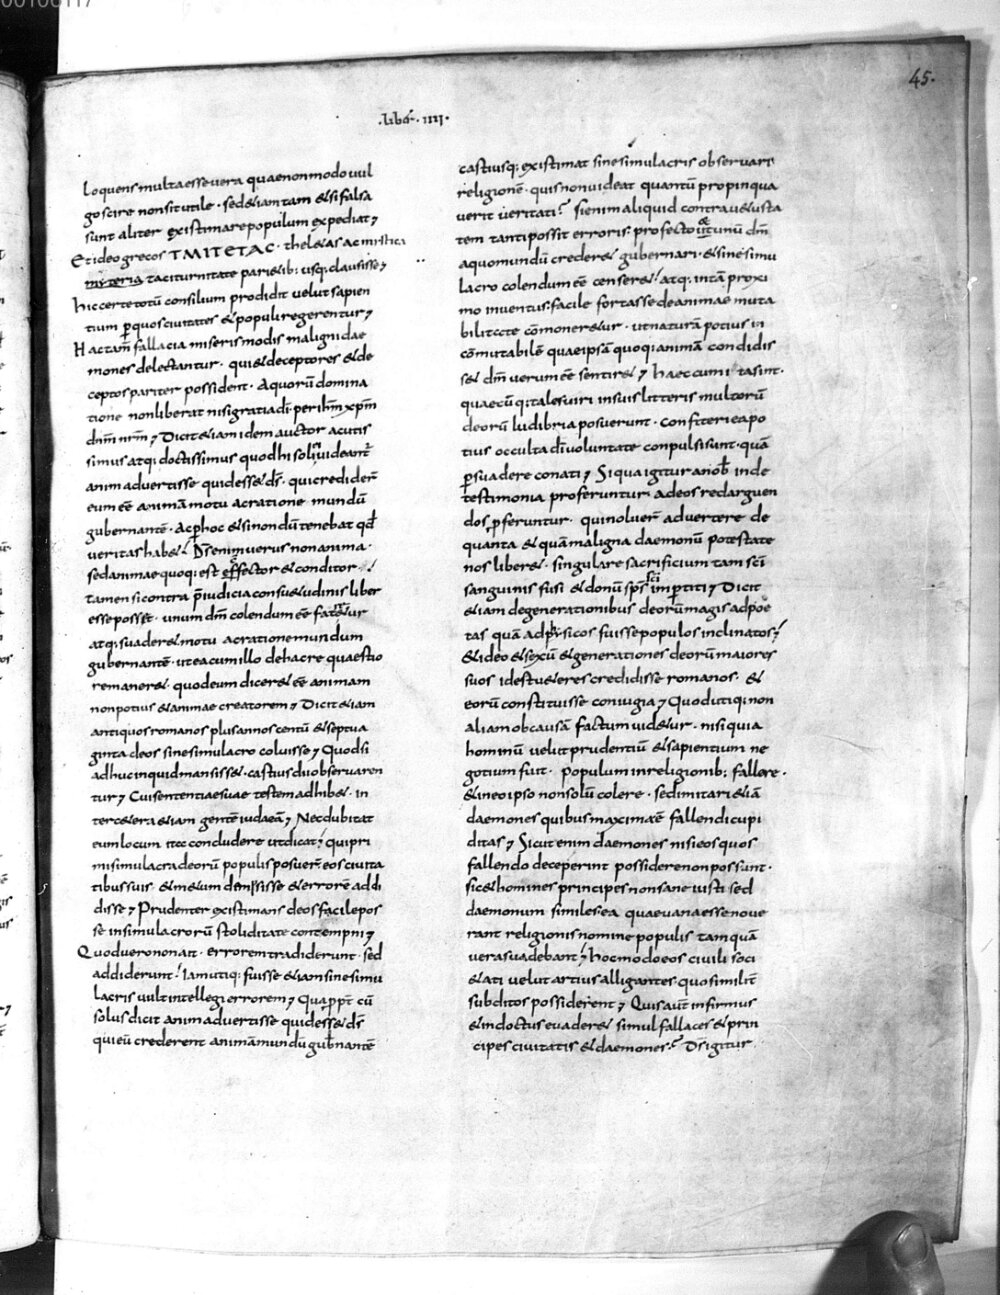 00106117
45.
.liber. IIII.
loquens multa esse vera quae non modo vul
go scire non sit utile. sed &iam tam &si falsa
sunt aliter existimare populum expediat;
Et ideo grecos TMITETAC. thel&as ac mistica
mysteria taciturnitate parietib; usq; clausisse;
hic certe totū consilium prodidit velut sapien
tium p̱ quos civitates & populi regerentur;
Hac tam̄ fallacia miseris modis maligni dae
mones delectantur. qui & deceptores & de
ceptos pariter possident. A quorū domina
tione non liberat nisi gratia dī per ihm̄ xpm̄
dnm̄ nrm̄; Dicit &iam idem auctor acutis
simus atq; doctissimus quod hi soli ei videant̄
animadvertisse quid ess& ds̄. qui credider̄
eum eē animā motu ac ratione mundū
gubernantē. Ac p̱ hoc &si nondū tenebat qd̄
veritas hab&. Ds̄ enim verus non anima.
sed animae quoq; est effector & conditor.
tamen si contra p̄iudicia consu&udinis liber
esse poss&. unum dm̄ colendum eē fater&ur
atq; suader& motu ac ratione mundum
gubernantē. ut ea cum illo de hac re quaestio
remaner&. quod eum dicer& eē animam
non potius & animae creatorem; Dicit &iam
antiquos romanos plus annos centū & septua
ginta deos sine simulacro coluisse; Quod si
adhuc inquid mansiss&. castius dii observaren
tur; Cui sententiae suae testem adhib&. in
ter c&era &iam gentē iudaeā; Nec dubitat
eum locum ita concludere ut dicat. qui pri
mi simulacra deorū populis posuer̄ eos civita
tibus suis. & m&um dempsisse & errorē addi
disse; Prudenter existimans deos facile pos
se in simulacrorū stoliditate contempni;
Quod vero non ait. errorem tradiderunt. sed
addiderunt. Iam utiq; fuisse &iam sine simu
lacris vult intellegi errorem; Quapp̱t̄ cū
solus dicit animadvertisse quid ess& ds̄
qui eū crederent animā mundū gub̄nantē
castiusq; existimat sine simulacris observari
religionē. quis non videat quantū propinqua
verit veritati? si enim aliquid contra v&usta
tem tanti possit erroris. profecto & unū dm̄
a quo mundū creder& gubernari. & sine simu
lacro colendum eē censer&. atq; in tā proxi
mo inventus. facile fortasse de animae muta
bilitate cōmoner&ur. ut naturā potius in
cōmutabilē quae ipsā quoq; animā condidis
s& dm̄ verum eē sentir&; haec cum ita sint.
quaecūq; tales viri in suis litteris multorū
deorū ludibria posuerunt. confiteri ea po
tius occulta dī voluntate conpulsi sunt. quā
p̱suadere conati; Si qua igitur a nob̄ inde
testimonia proferuntur. ad eos redarguen
dos p̱feruntur. qui noluer̄ advertere de
quanta & quā maligna daemonū potestate
nos liber&. singulare sacrificium tam sc̄i
sanguinis fusi & donū sps̄ sc̄i imp̱titi; Dicit
&iam de generationibus deorū magis ad poe
tas quā ad physicos fuisse populos inclinatos.
& ideo & sexū & generationes deorū maiores
suos id est v&eres credidisse romanos. &
eorū constituisse coniugia; Quod utiq; non
aliam ob causā factum vid&ur. nisi quia
hominū velut prudentiū & sapientium ne
gotium fuit. populum in religionib; fallere.
& in eo ipso non solū colere. sed imitari &iā
daemones quibus maxima ē fallendi cupi
ditas; Sicut enim daemones nisi eos quos
fallendo deceperint possidere non possunt.
sic & homines principes non sane iusti sed
daemonum similes. ea quae vana esse nove
rant religionis nomine populis tamquā
vera suadebant. hoc modo eos civili soci
&ati velut artius alligantes quo similit̄
subditos possiderent; Quis aut̄ infirmus
& indoctus evader& simul fallaces & prin
cipes civitatis & daemones. Ds̄ igitur